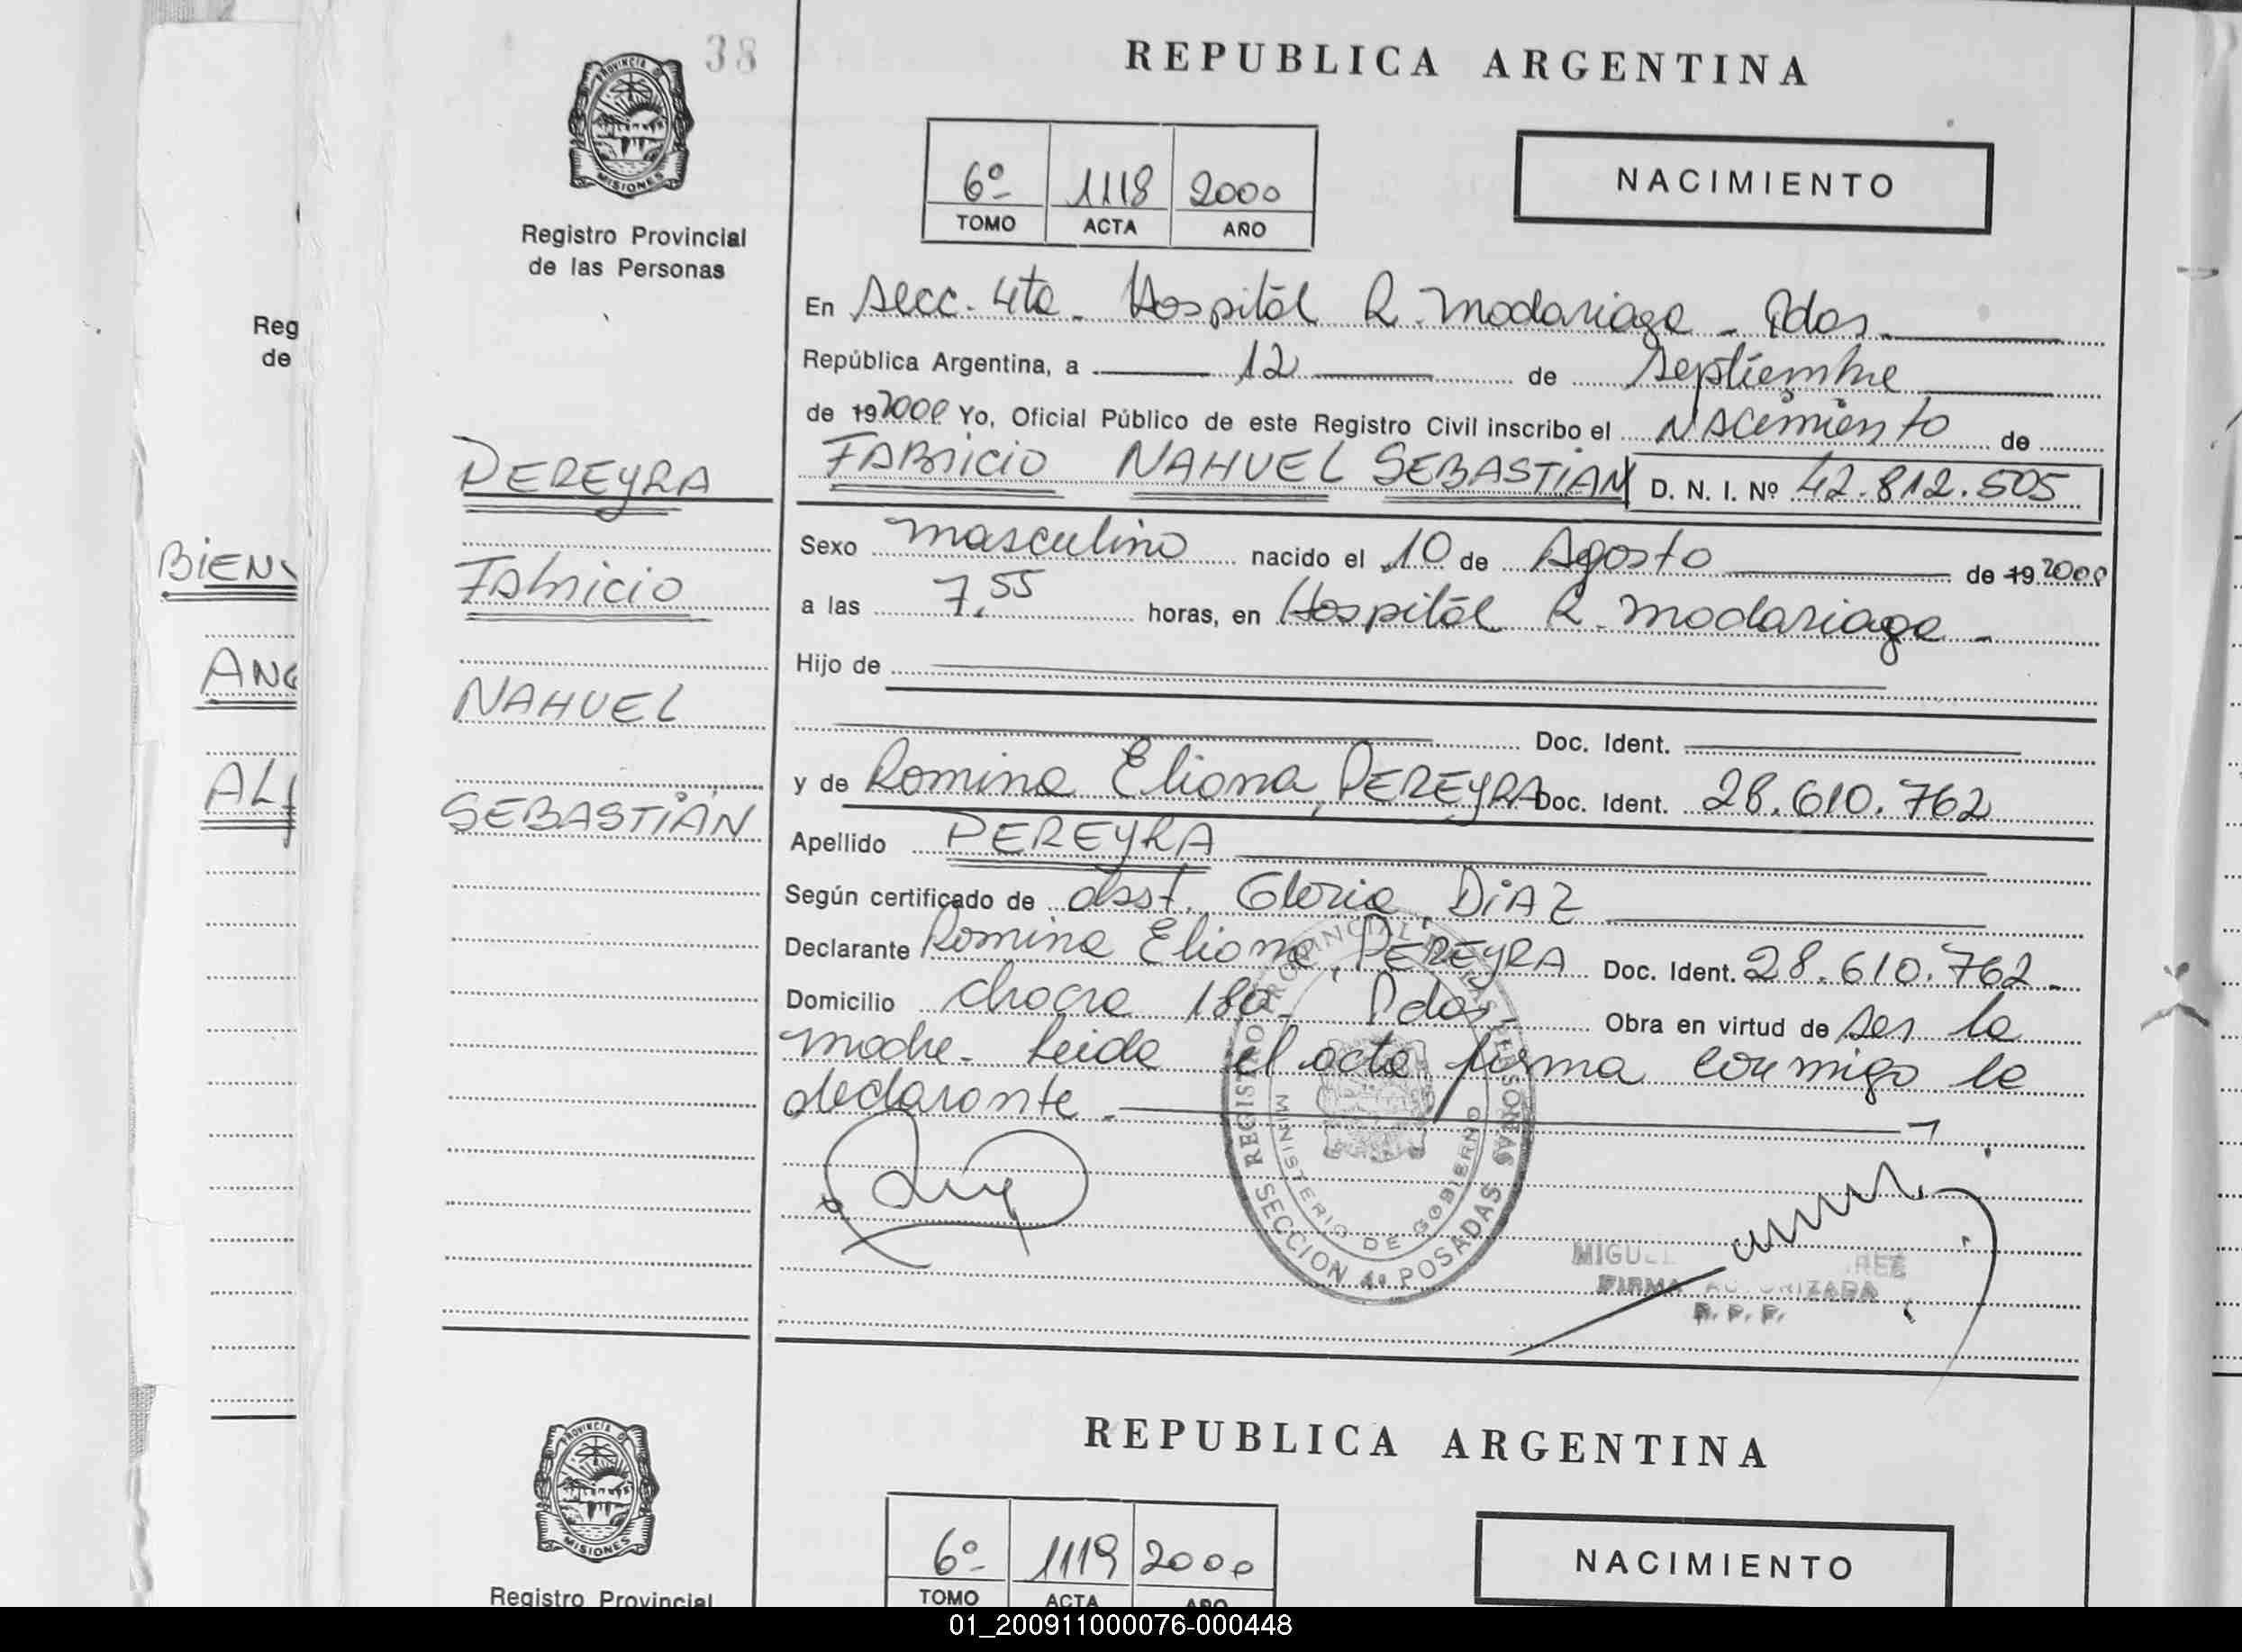 38
REPUBLICA ARGENTINA
PROVINCIA DE
MISIONES
6º 1118 2000
TOMO ACTA AÑO
NACIMIENTO
Registro Provincial
de las Personas
En Secc. 4ta - Hospital R. Madariaga - Pdas.
República Argentina, a 12 de Septiembre
de 19 2000 Yo, Oficial Público de este Registro Civil inscribo el Nacimiento de
FABricio NAHUEL SEBASTIAN D. N. I. Nº 42.812.505
Sexo masculino nacido el 10 de Agosto de 19 2000
a las 7,55 horas, en Hospital R. Madariaga -
Hijo de
Doc. Ident.
y de Romina Eliana, PEREYRA Doc. Ident. 28.610.762
Apellido PEREYRA
Según certificado de obst. Gloria, DiAZ
Declarante Romina Eliana, PEREYRA Doc. Ident. 28.610.762 -
Domicilio chacra 180 - Pdas. Obra en virtud de ser la
madre - Leida el acta firma conmigo la
declarante -
PEREYRA
FAbricio
NAHUEL
SEBASTIÁN
REGISTRO PROVINCIAL DE LAS PERSONAS
MINISTERIO DE GOBIERNO
SECCION 4a POSADAS
FIRMA AUTORIZADA
R. P. P.
Reg
de
BiEN
ANG
AL
REPUBLICA ARGENTINA
PROVINCIA DE
MISIONES
6º 1119 2000
TOMO ACTA AÑO
NACIMIENTO
Registro Provincial
01_200911000076-000448